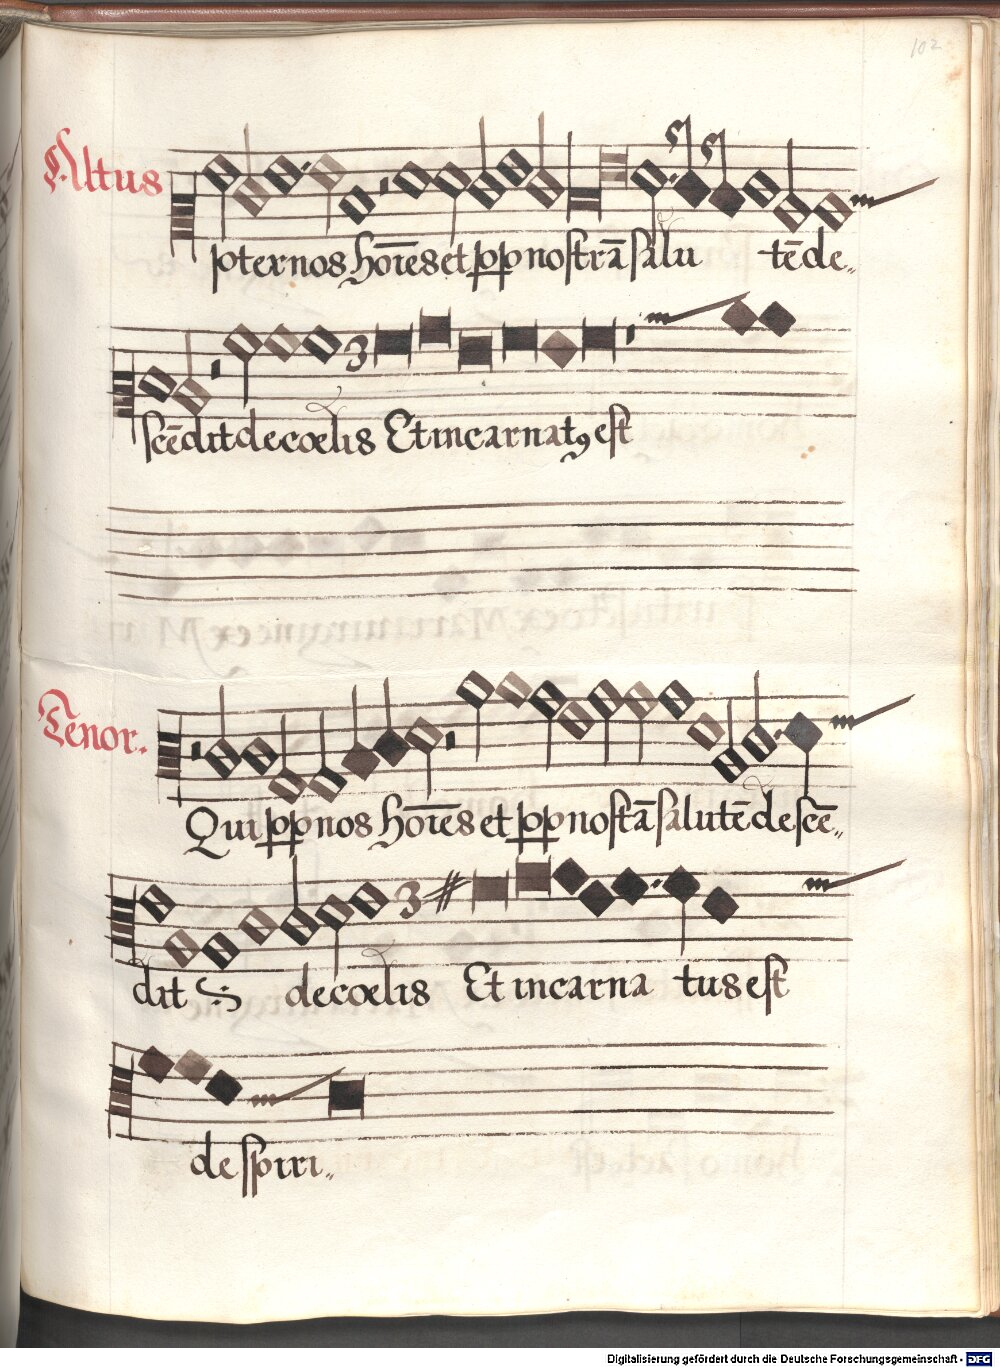 102
Altus
pter nos hoīes et pp nostrā salu tē de„
scēdit de coelis Et incarnatꝰ est
Tenor.
Qui pp nos hoīes et pp nostā salutē descē„
dit de coelis Et incarna tus est
de spiri„
Digitalisierung gefördert durch die Deutsche Forschungsgemeinschaft - DFG